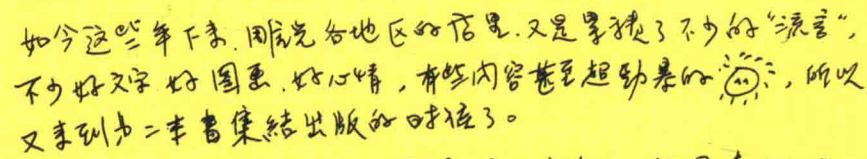 如今这些年下来,周游各地区的店里,又是累積了不少的“流言”,
不少好文字 好图画,好心情,有些内容甚至超劲暴的 , 所以
又来到出二本書集結出版的时候了。